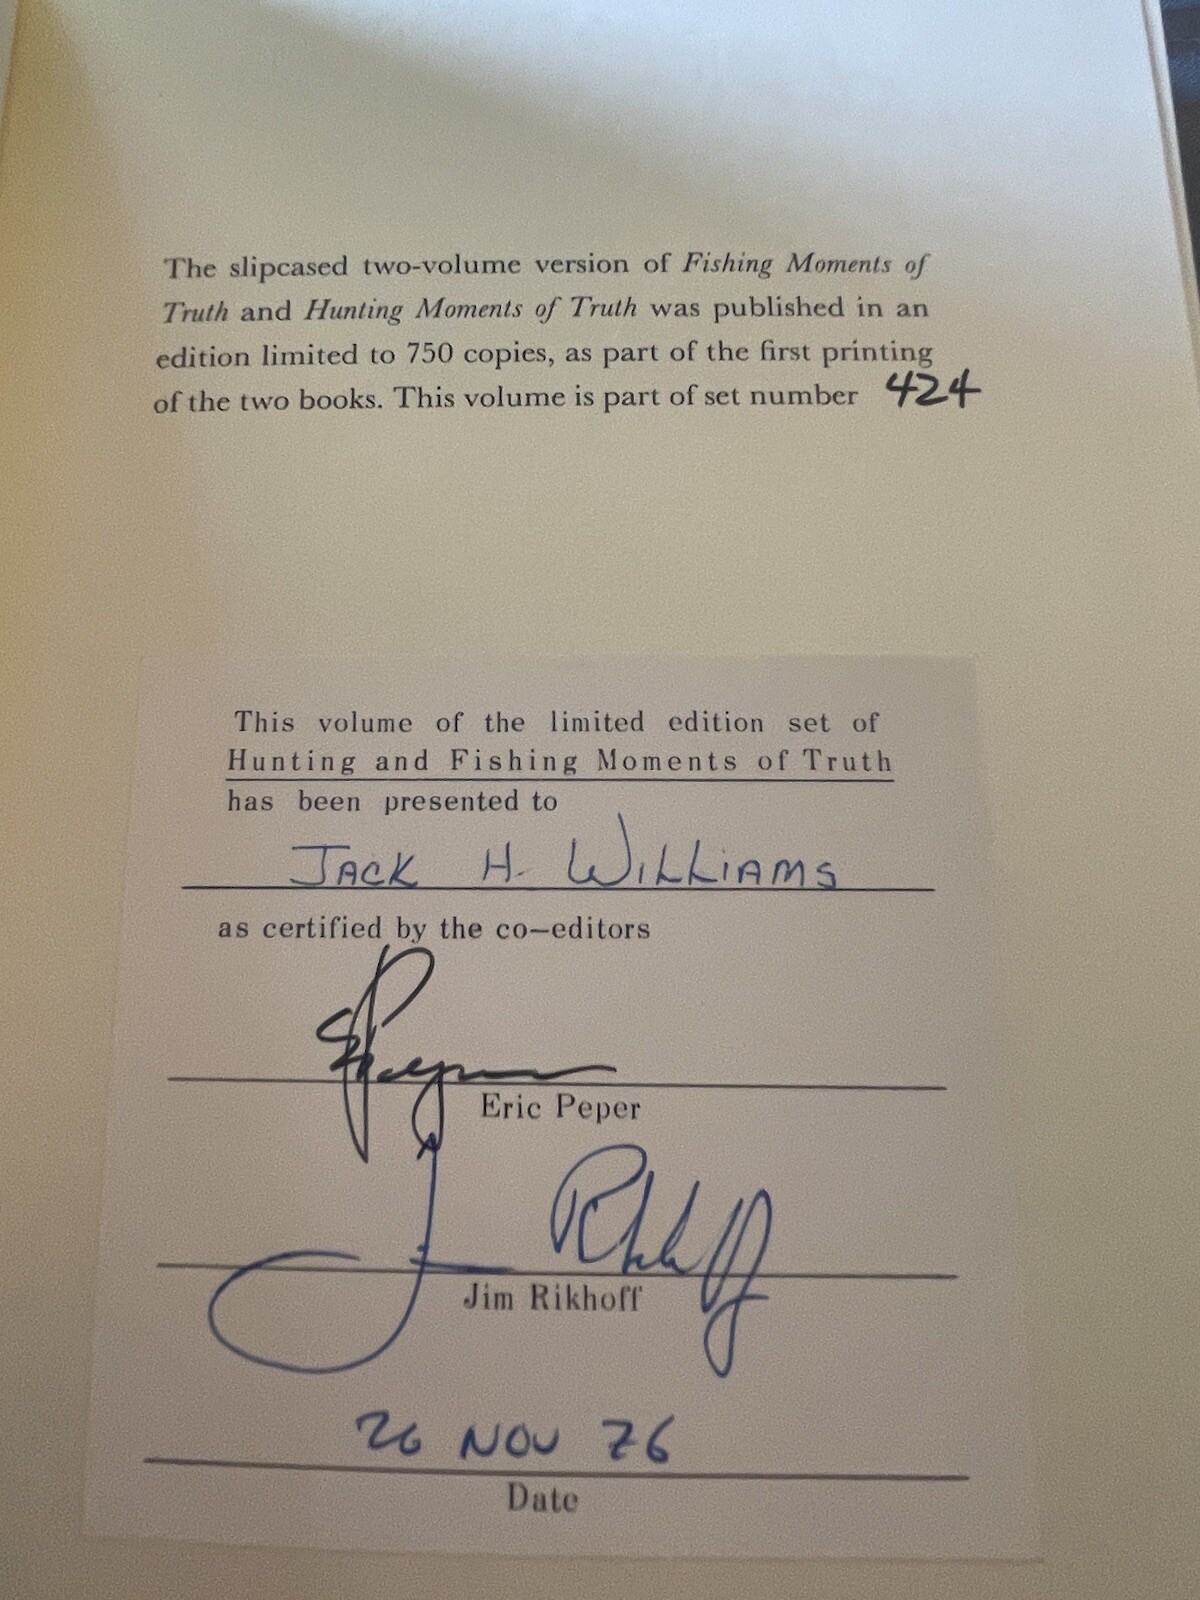 The slipcased two-volume version of Fishing Moments of
Truth and Hunting Moments of Truth was published in an
edition limited to 750 copies, as part of the first printing
of the two books. This volume is part of set number 424
This volume of the limited edition set of
Hunting and Fishing Moments of Truth
has been presented to
JACK H. WILLIAMS
as certified by the co-editors
EPeper
Eric Peper
J Rikhoff
Jim Rikhoff
26 NOV 76
Date